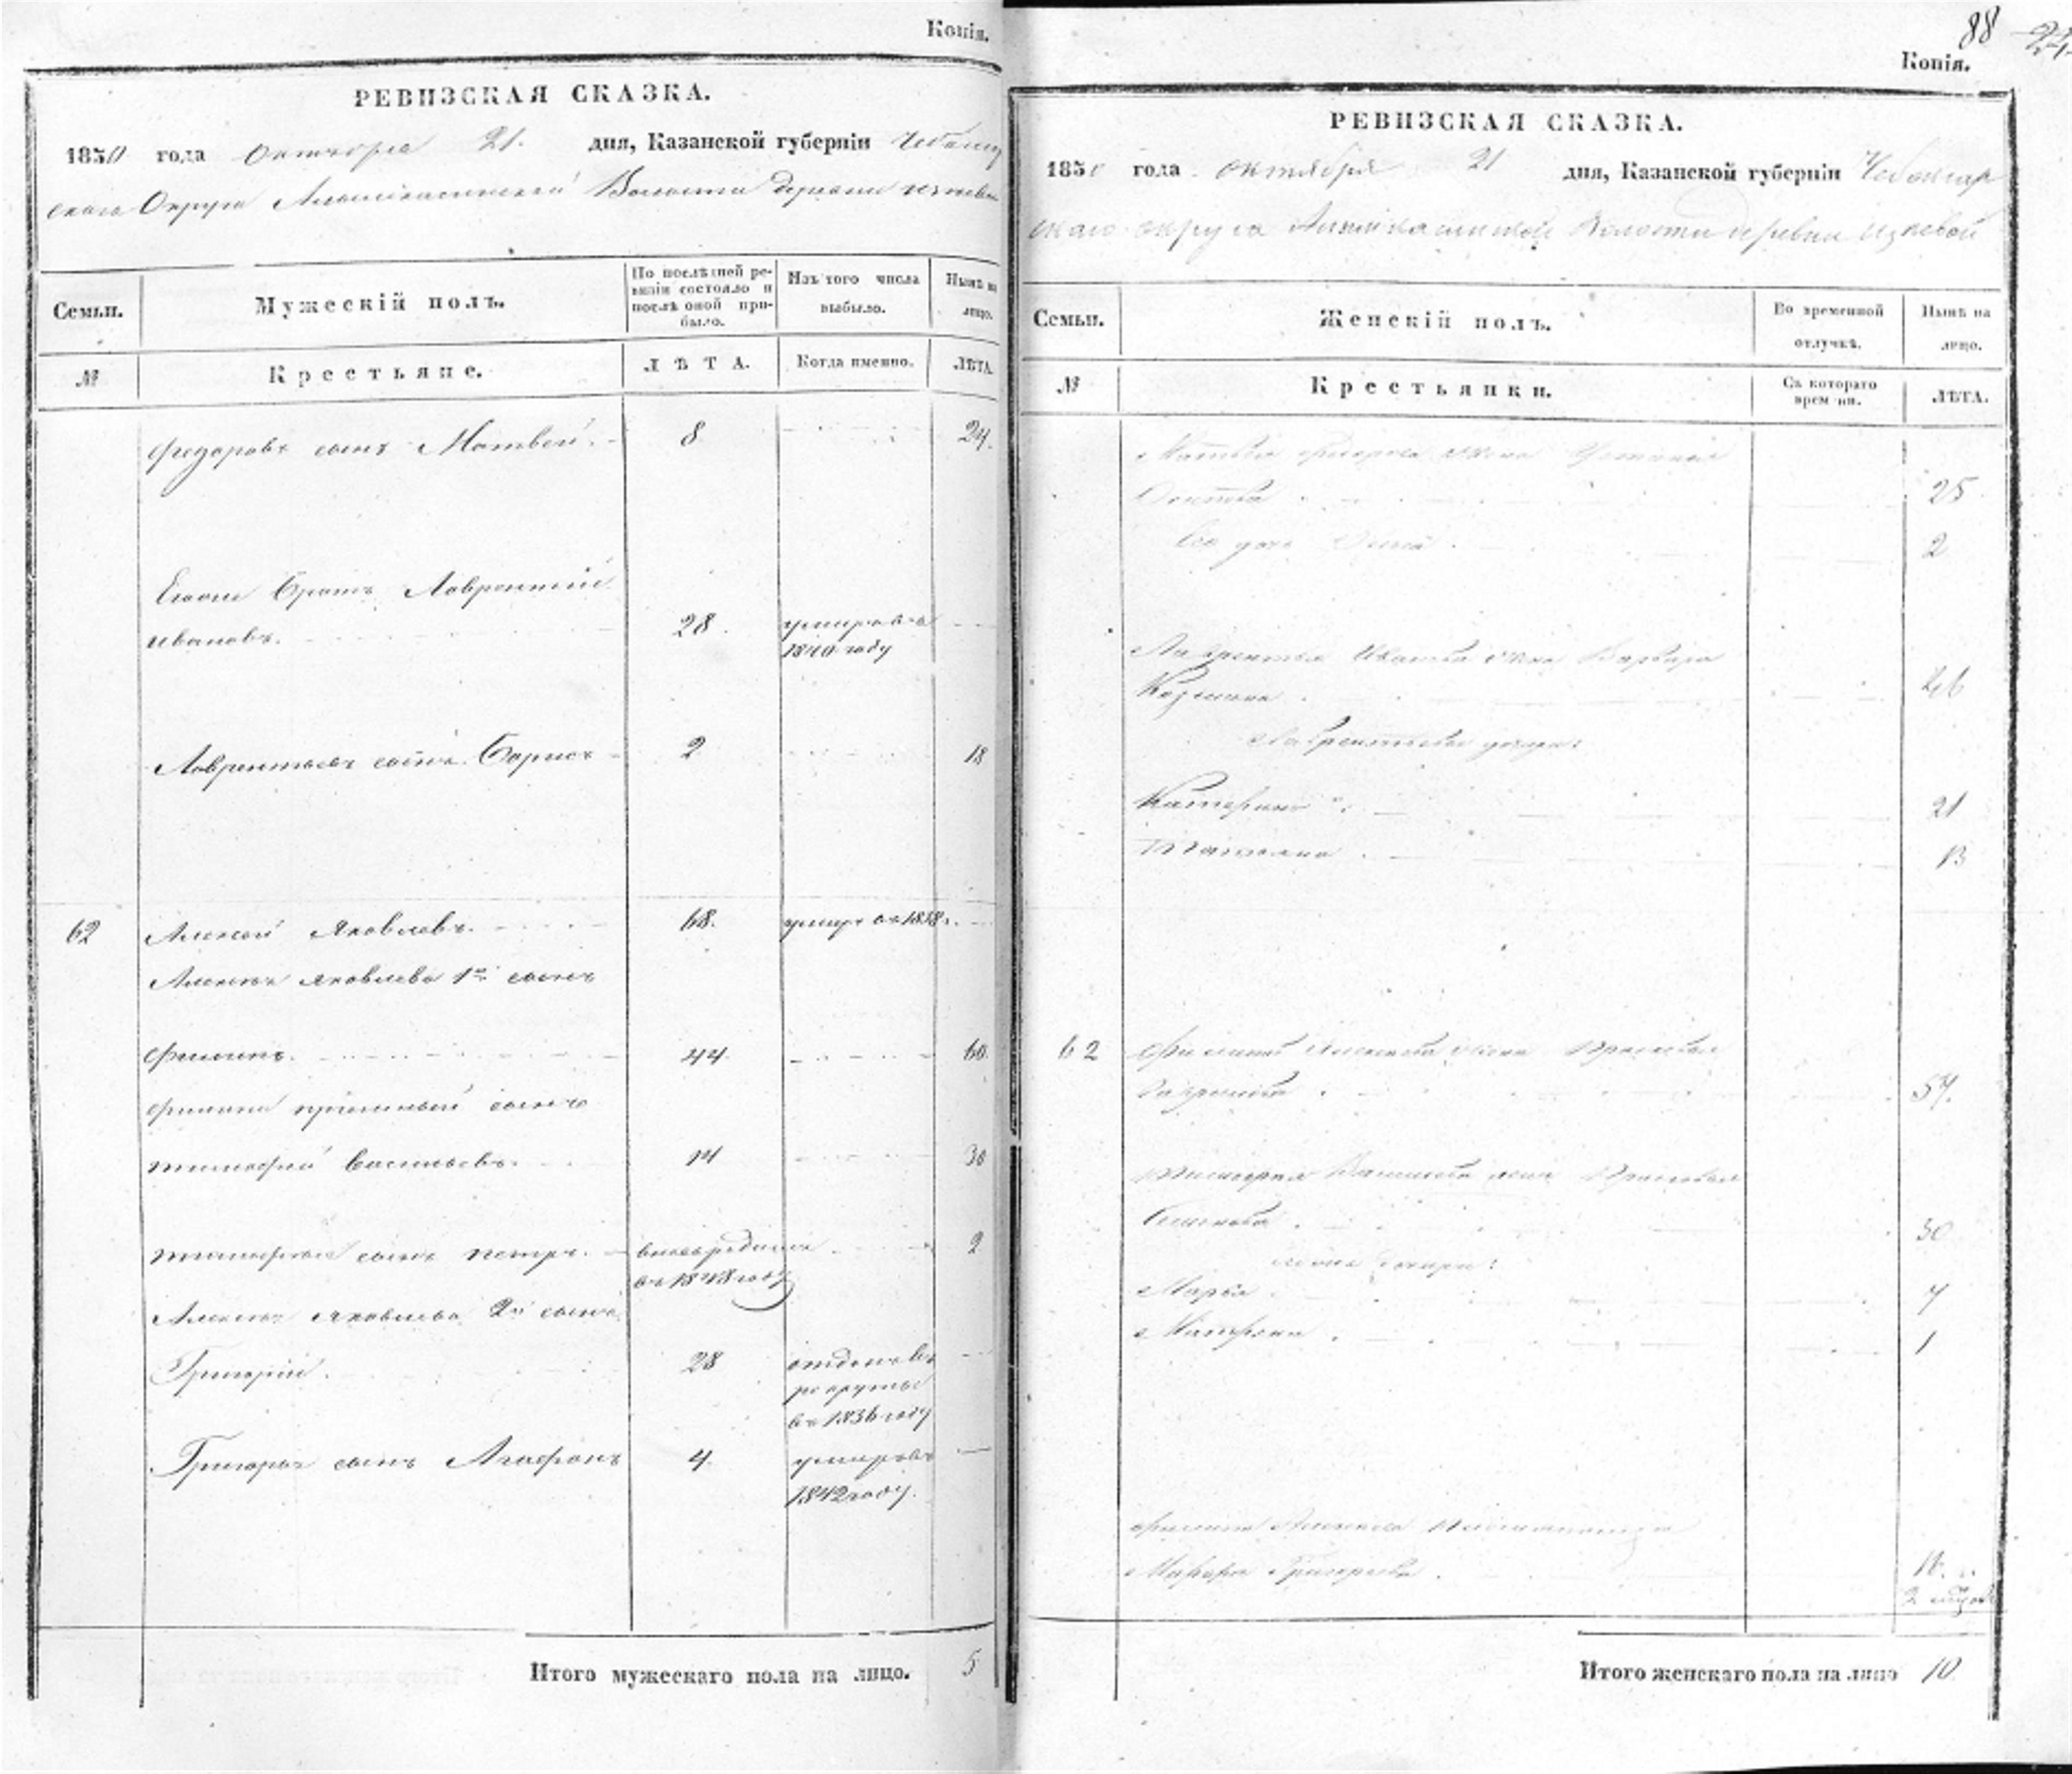 Копія.
РЕВИЗСКАЯ СКАЗКА.
1850 года Октября 21. дня, Казанской губерніи
скаго Округа Волости деревни
Семьи.
Мужескій полъ.
По послѣдней ре-
визіи состояло и
послѣ оной при-
было.
Изъ того числа
выбыло.
Нынѣ на
лицо.
№
Крестьяне.
ЛѢТА.
Когда именно.
ЛѢТА.
Федоровъ сынъ Матвей. 8 24.
братъ Лаврентій
Ивановъ. 28. умеръ въ
1840 году
Лаврентьевъ сынъ Борисъ 2 18
62 Алексей Яковлевъ. 68. умеръ въ 1838
Алексея Яковлева 1й сынъ
Филипъ. 44 60
Филипа пріемный сынъ
Тимофей Васильевъ. 14 30
Тимофея сынъ Петръ. вновь рожденъ 2
въ 1848 году
Алексея Яковлева 2й сынъ
Григорій. 28 отданъ въ
рекруты
въ 1836 году
Григорья сынъ Агафонъ 4. умеръ въ
1842 году.
Итого мужескаго пола на лицо. 5
88
Копія.
РЕВИЗСКАЯ СКАЗКА.
1850 года октября 21 дня, Казанской губерніи Чебоксар
скаго округа Волости деревни
Семьи.
Женскій полъ.
Во временной
отлучкѣ.
Нынѣ на
лицо.
№
Крестьянки.
Съ котораго
времени.
ЛѢТА.
Матвея Федорова жена
25
Его дочь 2
Лаврентья Иванова жена Варвара
Козмина 46
Лаврентьевы дочери:
Катерина 21
Татьяна 13
62 Филипа Алексеева жена Прасковья
57.
Тимофея Васильева жена Прасковья
30
дочери:
Марья 7
Матрена 1
Филипа Алексеева
Григорьева
Итого женскаго пола на лицо 10